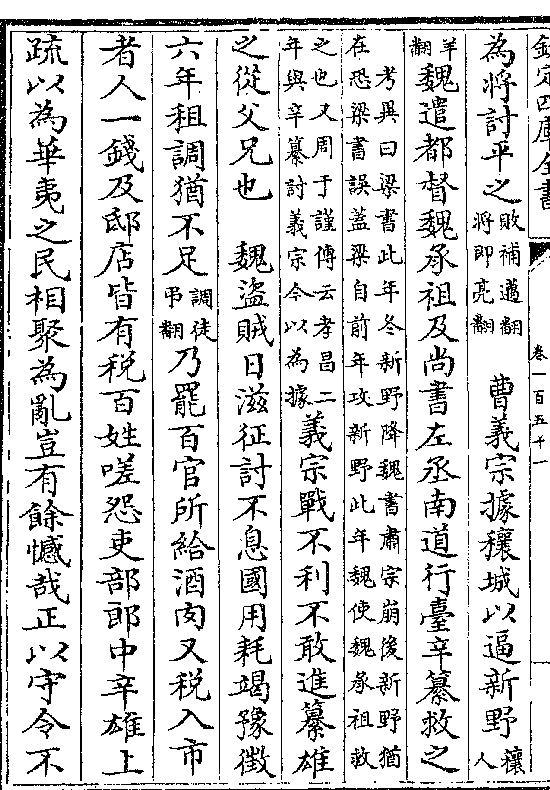 欽定四庫全書 卷一百五十一
為將討平之敗補邁翻將即亮翻 曹義宗據穰城以逼新野穰人
羊翻魏遣都督魏承祖及尚書左丞南道行臺辛纂救之
考異曰梁書此年冬新野降魏書肅宗崩後新野猶
在恐梁書誤蓋梁自前年攻新野此年魏使魏承祖救
之也又周于謹傳云孝昌二
年與辛纂討義宗今以為據
義宗戰不利不敢進纂雄
之從父兄也 魏盜賊日滋征討不息國用耗竭豫徵
六年租調猶不足調徒弔翻乃罷百官所給酒肉又稅入市
者人一錢及邸店皆有稅百姓嗟怨吏部郎中辛雄上
疏以為華夷之民相聚為亂豈有餘憾哉正以守令不